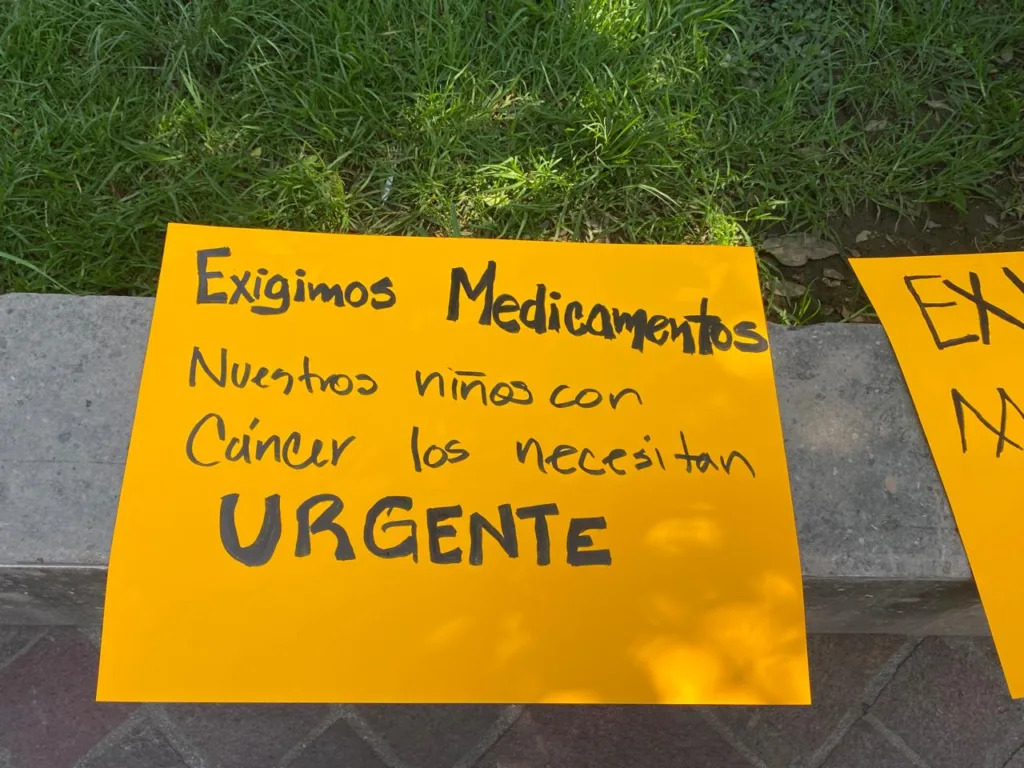 Exigimos Medicamentos
Nuestros niños con
Cáncer los necesitan
URGENTE